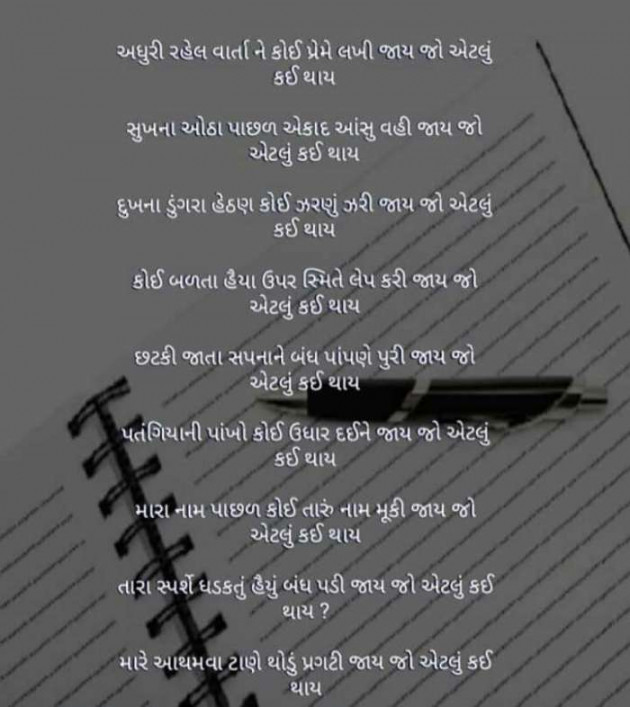 અધુરી રહેલ વાર્તા ને કોઈ પ્રેમે લખી જાય જો એટલું
કઈ થાય
સુખના ઓઠા પાછળ એકાદ આંસુ વહી જાય જો
એટલું કઈ થાય
દુખના ડુંગરા હેઠણ કોઈ ઝરણું ઝરી જાય જો એટલું
કઈ થાય
કોઈ બળતા હૈયા ઉપર સ્મિતે લેપ કરી જાય જો
એટલું કઈ થાય
છટકી જાતા સપનાને બંધ પાંપણે પુરી જાય જો
એટલું કઈ થાય
પતંગિયાની પાંખો કોઈ ઉધાર દઈને જાય જો એટલું
કઈ થાય
મારા નામ પાછળ કોઈ તારું નામ મૂકી જાય જો
એટલું કઈ થાય
તારા સ્પર્શે ધડકતું હૈયું બંધ પડી જાય જો એટલું કઈ
થાય ?
મારે આથમવા ટાણે થોડું પ્રગટી જાય જો એટલું કઈ
થાય